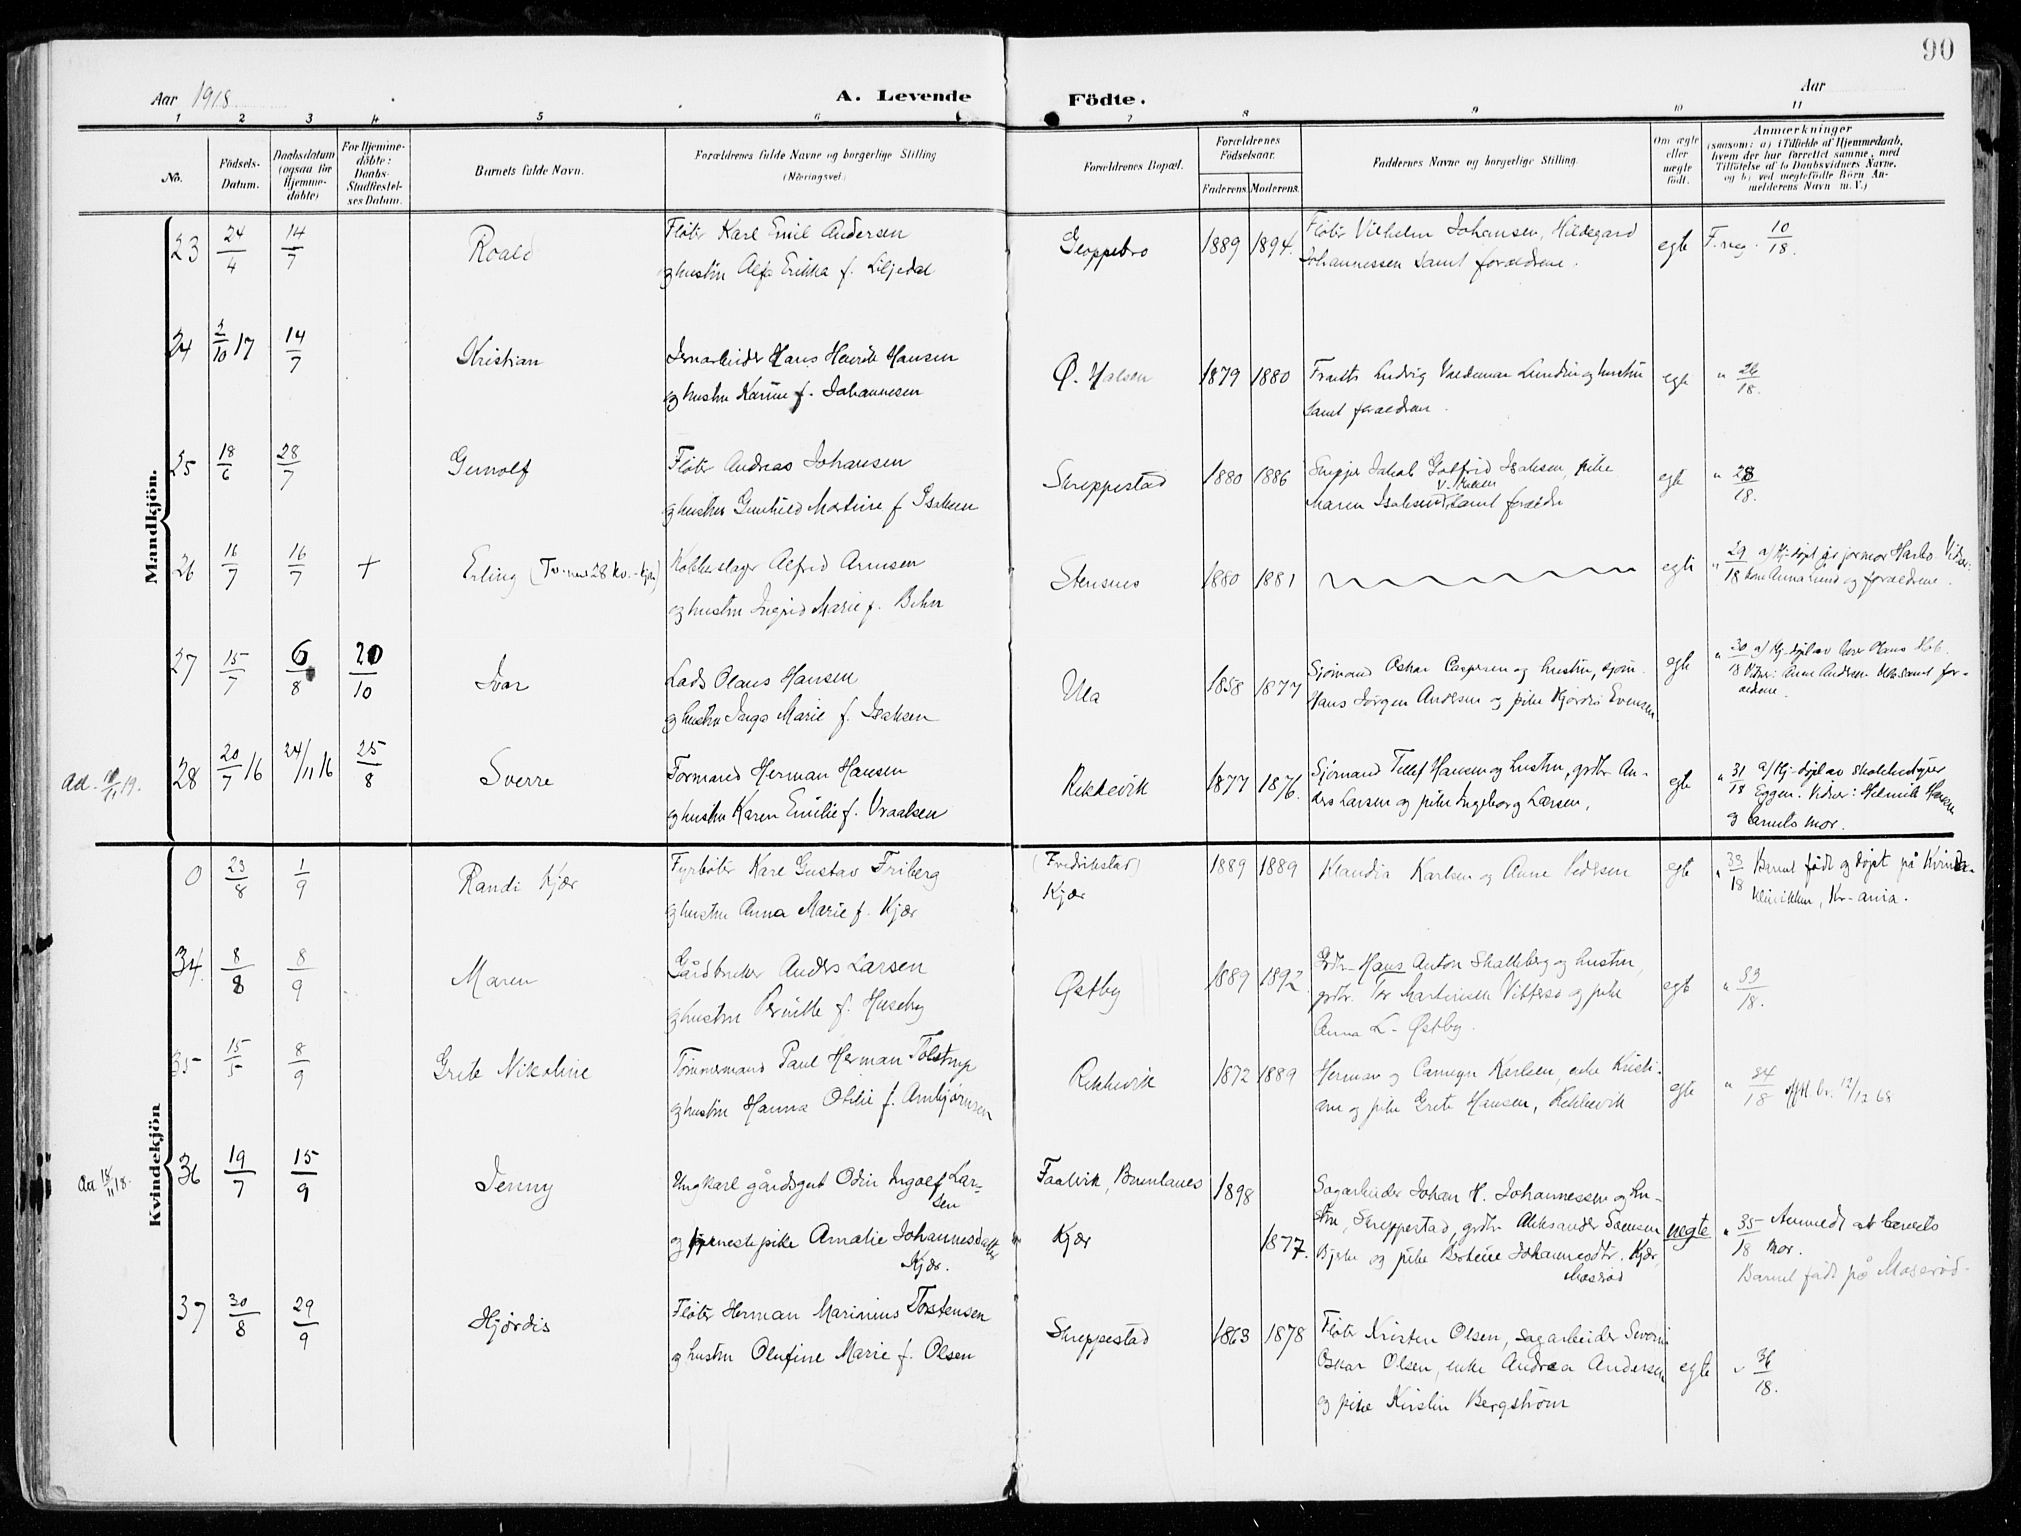 90
Aar 1918
A. Levende Födte.
Aar
1 2 3 4 5 6 7 8 9 10 11
No.
Födsels-Datum.
Daabsdatum (ogsaa for Hjemme-döbte)
For Hjemme-döbte: Daabs-Stadfæstel-ses Datum.
Barnets fulde Navn.
Forældrenes fulde Navne og borgerlige Stilling (Næringsvei)
Forældrenes Bopæl.
Forældrenes Födselsaar.
Faderens. Moderens.
Faddernes Navne og borgerlige Stilling.
Om ægte eller uægte födt.
Anmærkninger
(saasom: a) i Tilfælde af Hjemmedaab, hvem der har forrettet samme, med Tilföielse af to Daabsvidners Navne. og b) ved uægtefödte Börn An-melderens Navn m. V.)
Mandkjön.
23 24/4 14/7 Roald
Fløter Karl Emil Andersen
og hustru Alfa Erikka f. Liljedal
Gloppebro 1889 1894.
Fløter Vilhelm Johansen, Hildegard
Johannessen samt forældrene.
egte F. reg. 10/18.
24 2/10 17 14/7 Kristian
Jernarbeider Hans Henrik Hansen
og hustru Karine f. Johannesen
Ø. Halsen 1879 1880
Ludvig Valdemar Lundin og hustru
samt forældrene.
egte " 26/18.
25 18/6 28/7 Gunolf
Fløter Andreas Johansen
og hustru Gunhild Martine f. Isaksen
Skreppestad 1880 1886
Skipper Jakob Gotfrid Isaksen, pike
Maren Isaksen samt forældre
egte " 28/18.
26 16/7 16/7 + Erling (Tv. med 28 kv.-kjøn)
Kobberslager Alfred Arnesen
og hustru Ingrid Marie f. Behn
Stensnes 1880 1881
egte " 29/18 a/ Hj. døpt av jormor Vidner:
og forældrene.
27 15/7 6/8 20/10 Ivar
Lods Olaus Hansen
og hustru Inga Marie f. Isaksen
Ula 1858 1877
Sjømand Oskar Caspersen og hustru, sjøm.
Hans Jørgen Andersen og pike Hjørdis Evensen.
egte " 30/18 a/ Hj. døpt av
Vidner: Anne Andresen samt for-
ældrene.
Ad. 10/11 19.
28 20/7 16 24/11 16 25/8 Sverre
Formand Herman Hansen
og hustru Karen Emilie f. Vraalsen
Rekkevik 1877 1876.
Sjømand Tellef Hansen og hustru, grdbr. An-
ders Larsen og pike Ingeborg Larsen,
egte " 31/18 a/ Hj-døpt av skolebestyrer
Eggen. Vidner: Helmik Hansen
og barnets mor.
Kvindekjön
0 23/8 1/9 Randi Kjær
Fyrbøter Karl Gustav Friberg
og hustru Anna Marie f. Kjær
(Fredrikstad)
Kjær
1889 1889
Klaudia Karlsen og Anne Pedersen
egte " 33/18 Barnet født og døpt på Kvinde-
klinikken, Kr-ania.
34. 8/8 8/9 Maren
Gårdbruker Anders Larsen
og hustru Pernille f. Huseby
Østby 1889 1892
Grdbr. Hans Anton Skalleberg og hustru,
grdbr. Tor Vittersø og pike
Anna L. Østby.
egte " 33/18.
35 15/5 8/9 Grete Nikoline
Tømmermand Paul Herman Tolstrup
og hustru Hanna Otilie f. Arnbjørnsen
Rekkevik 1872 1889
Herman og Karlsen, enke Kristi-
ane og pike Grete Hansen, Rekkevik
egte " 34/18 12/12 68
Aa 18/11 18.
36 19/7 15/9 Jenny
Ungkarl gårdsgut Odin Ingolf Lar-
sen
og tjenestepike Amalie Johannesdatter
Kjær.
Faalvik, Brunlanes
Kjær
1898
1877.
Sagarbeider Johan H. Johannessen og hu-
stru, Skreppestad, grdbr. Aleksander Samsen
og pike Bertine Johannesdtr. Kjær,
Moserød
uegte
" 35/18 Anmeldt at barnets
mor.
Barnet født på Moserød.
37 30/8 29/9 Hjørdis
Fløter Herman Marinius Torstensen
og hustru Olufine Marie f. Olsen
Skreppestad 1863 1878
Fløter Kristen Olsen, sagarbeider Severin
Oskar Olsen, enke Andrea Andersen
og pike Kirstin Bergstrøm
egte " 36/18.